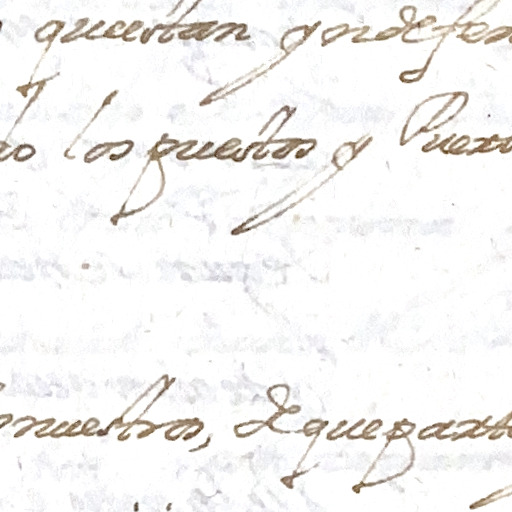 questan yndefen
do los puestos y Puert
nuestros, de que part